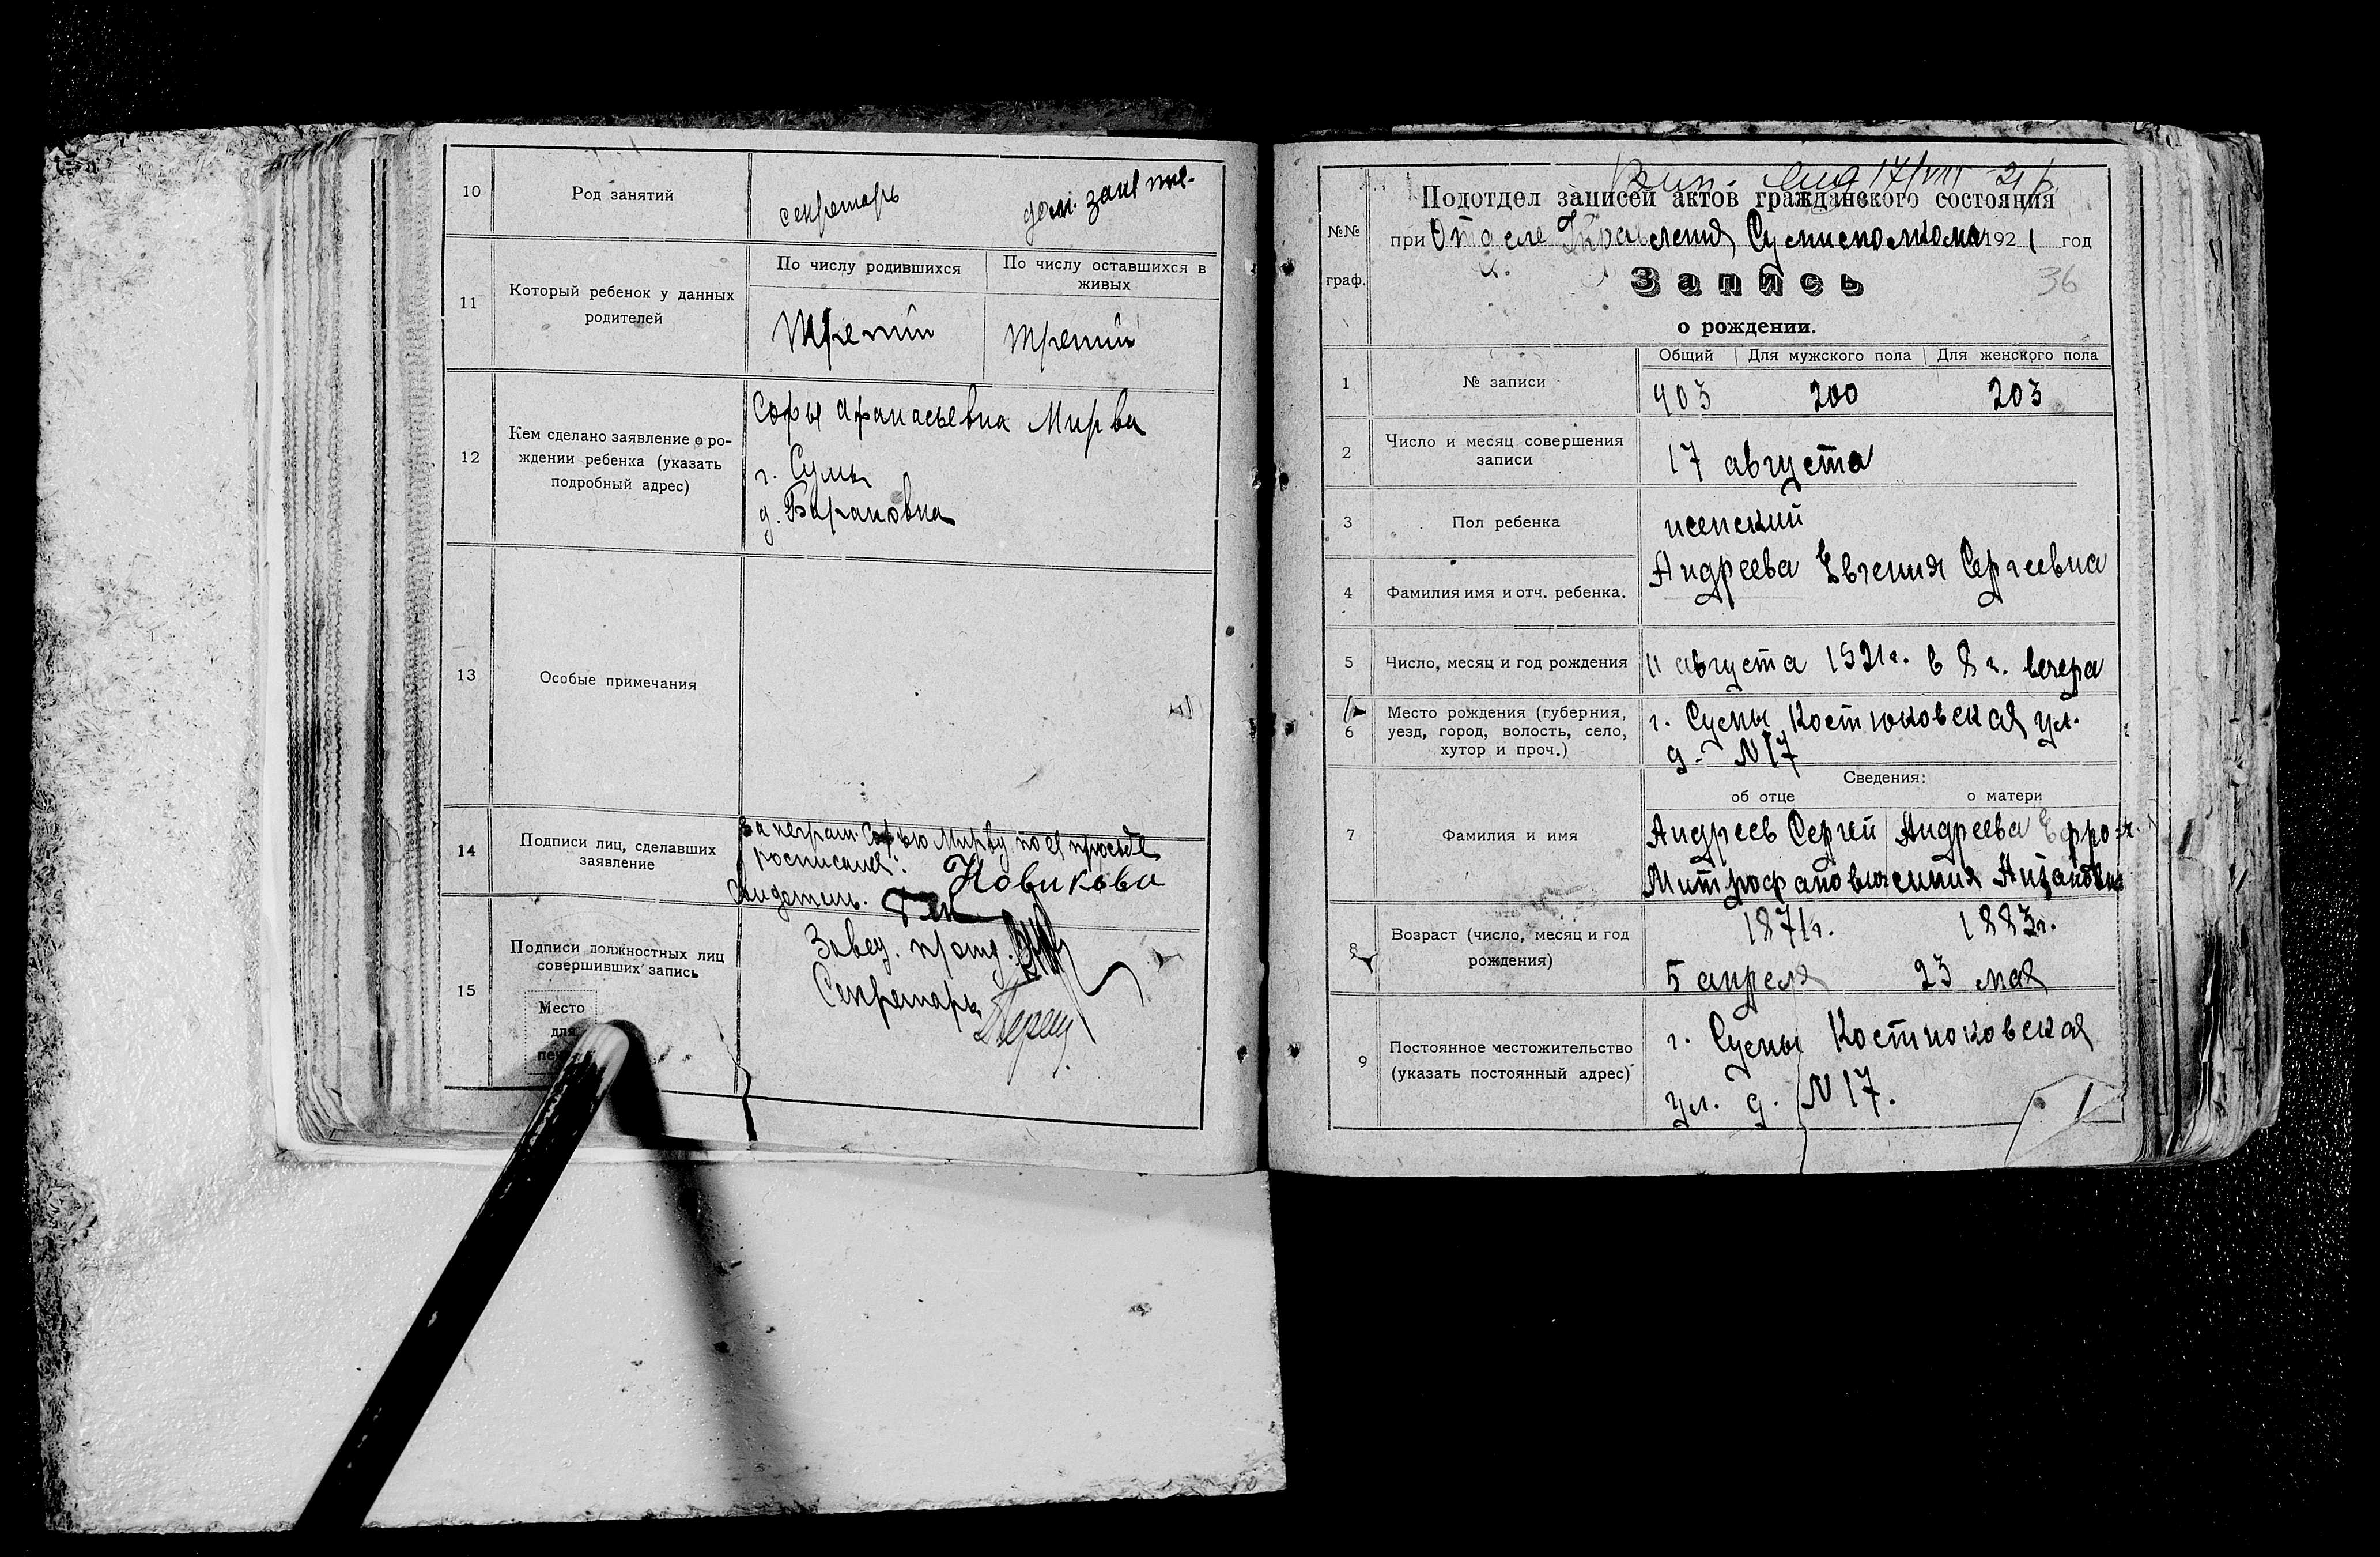 10
Род занятий
секретарь
дом. заня тие.
11
Который ребенок у данных
родителей
По числу родившихся
По числу оставшихся в
живых
Третий
третий
12
Кем сделано заявление о ро-
ждении ребенка (указать
подробный адрес)
Софья Афанасьевна Мирва
г. Сумы
д. Барановка
13
Особые примечания
14
Подписи лиц, сделавших
заявление
За неграм. Софью Мирву по ея просьбе
росписался:
Новикова
Свидетель.
15
Подписи должностных лиц
совершивших запись
Место
для
Завед. п/отд.
Секретарь
17/VIII 21
Подотдел записей актов гражданского состояния
№№
граф.
при Отделе Управления Сумисполкома 1921 год
Запись
36
о рождении.
1
№ записи
Общий
Для мужского пола
Для женского пола
403
200
203
2
Число и месяц совершения
записи
17 августа
3
Пол ребенка
женский
4
Фамилия имя и отч. ребенка.
Андреева Евгения Сергеевна
5
Число, месяц и год рождения
11 августа 1921 г. в 8 ч. вечера
6
Место рождения (губерния,
уезд, город, волость, село,
хутор и проч.)
г. Сумы Костюковская ул.
д. N 17
Сведения:
об отце
о матери
7
Фамилия и имя
Андреев Сергей
Митрофанович
Андреева Ефро-
синия
8
Возраст (число, месяц и год
рождения)
1871 г.
5 апреля
1883 г.
23 мая
9
Постоянное местожительство
(указать постоянный адрес)
г. Сумы Костюковская
ул. д. N 17.